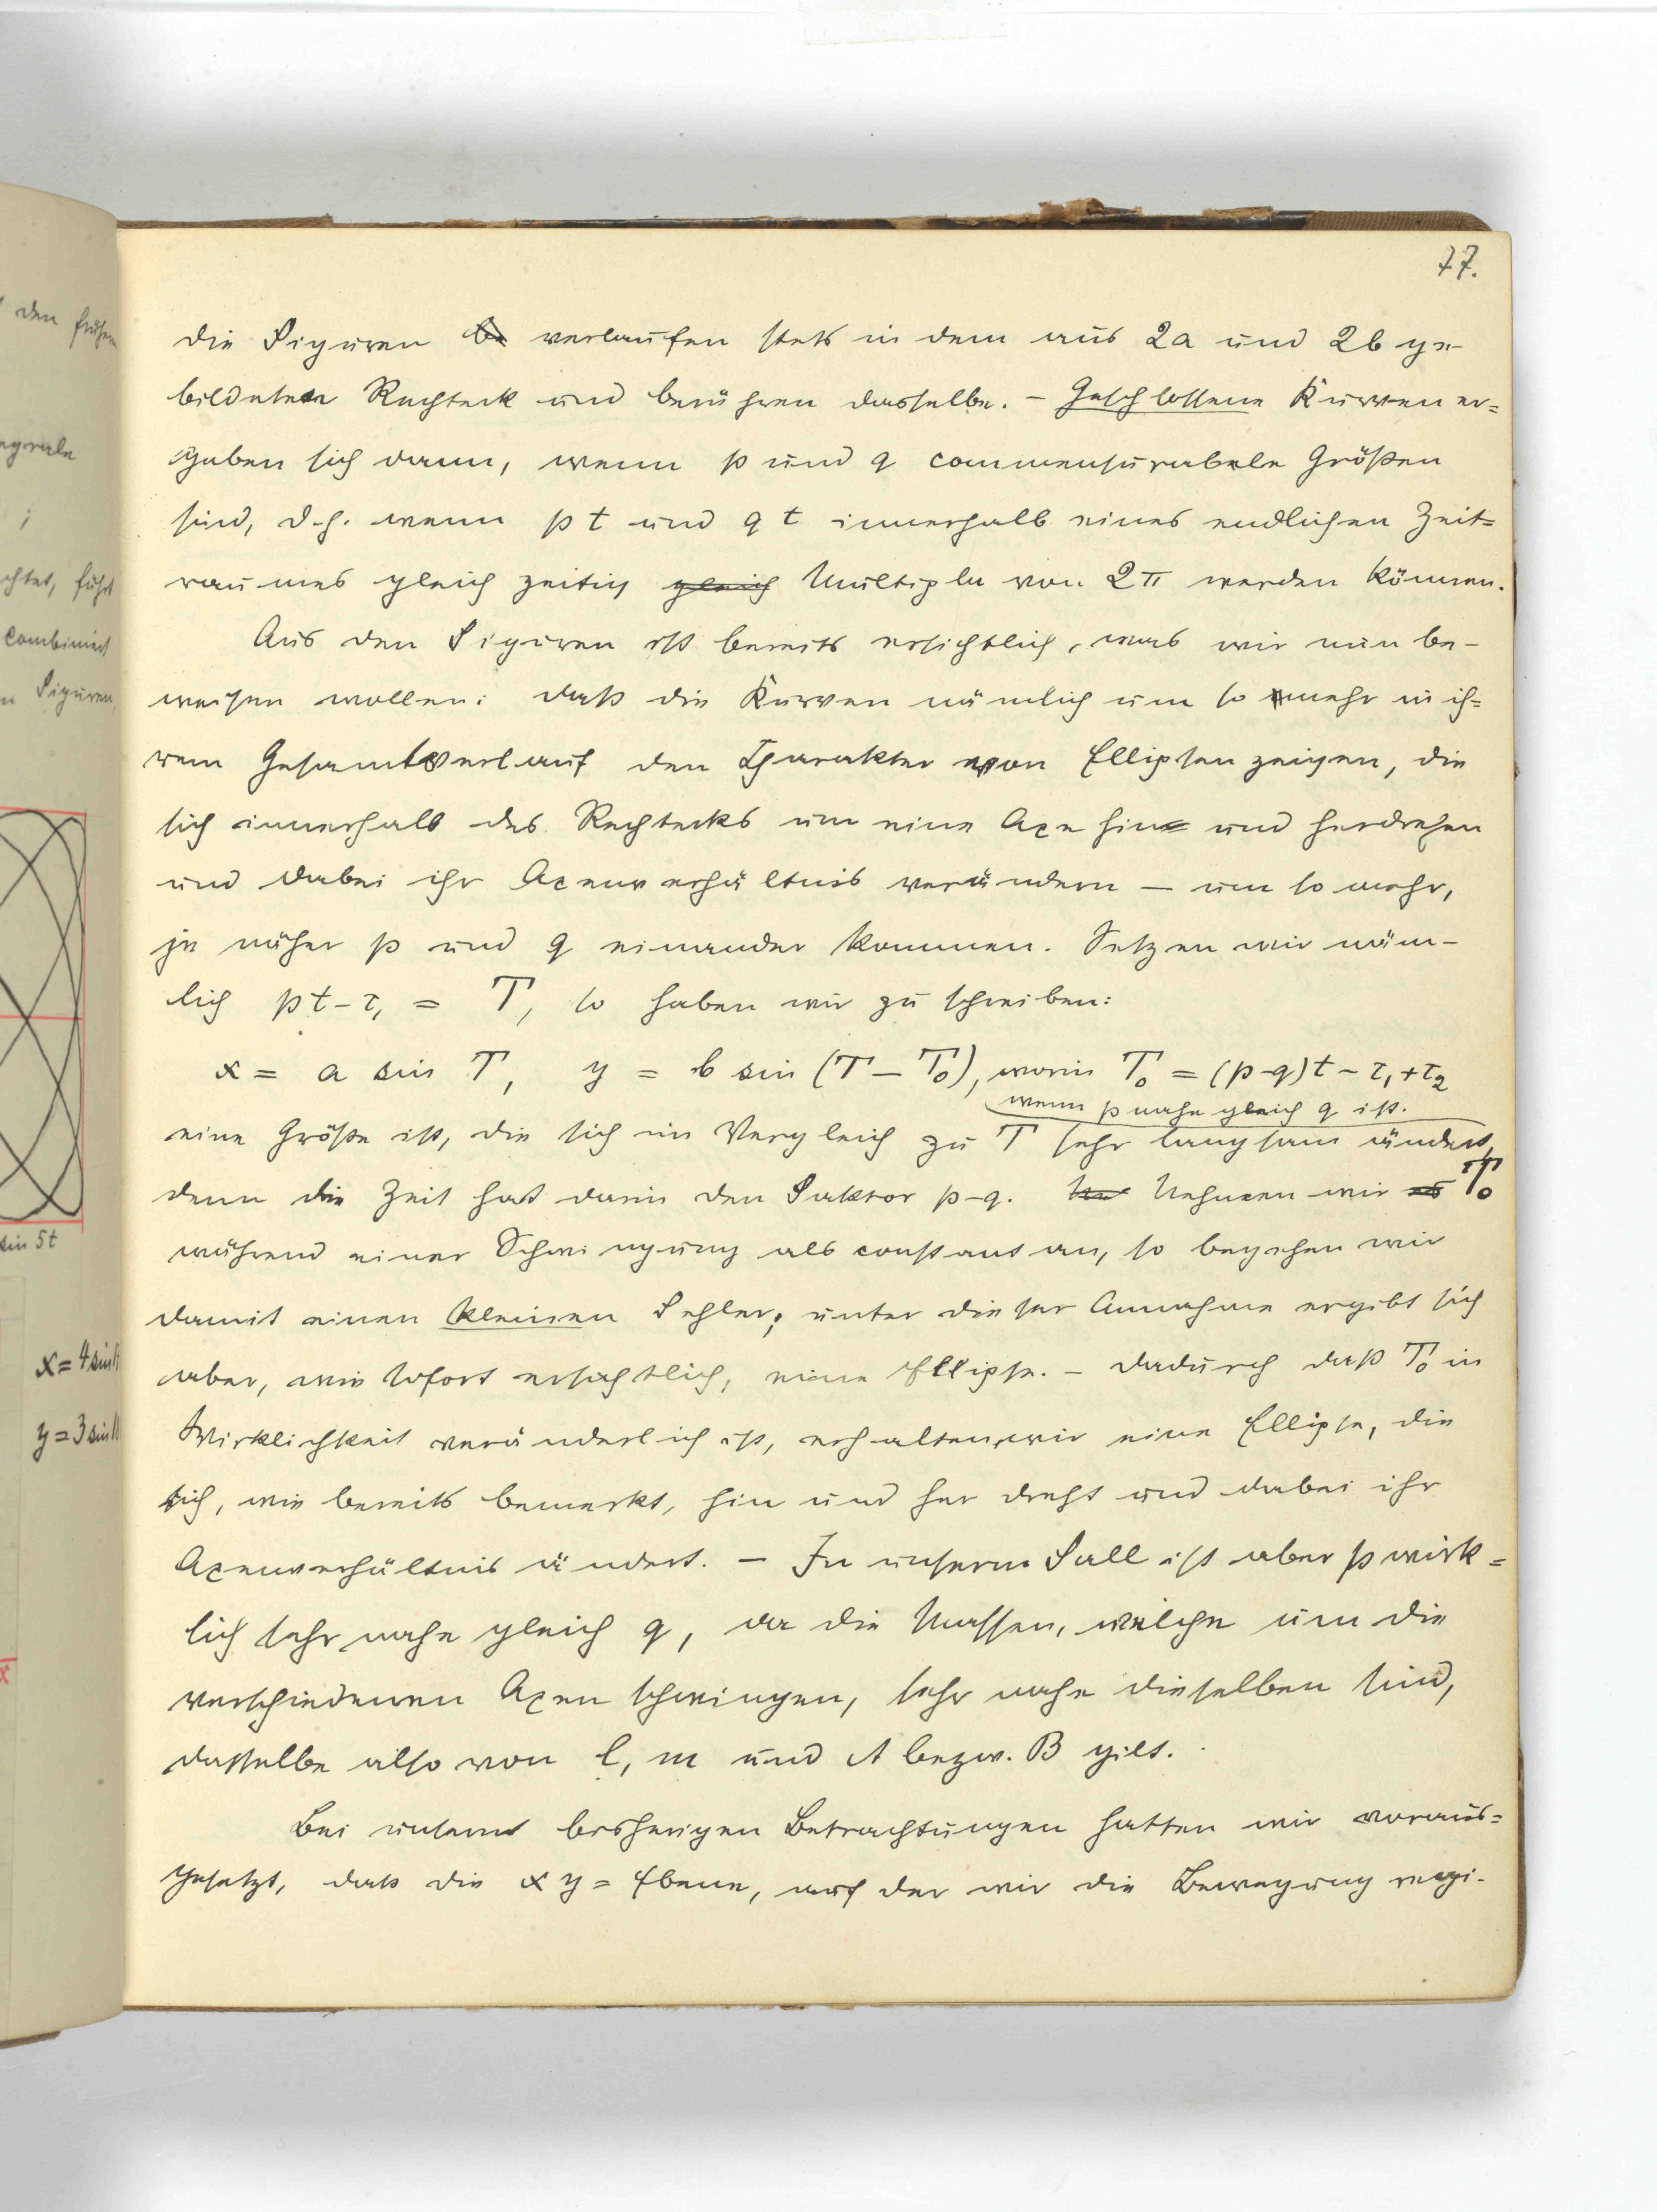 77.
die Figuren verlaufen stets in dem aus 2a und 2b ge-
bildeten Rechteck und berühren dasselbe. – Geschlossene Kurven er=
geben sich dann, wenn p und q commensurabele Größen
sind, d.h. wenn pt und qt innerhalb eines endlichen Zeit=
raumes gleichzeitig gleich Multipla von 2π werden können.
Aus den Figuren ist bereits ersichtlich, was wir nun be-
weisen wollen: daß die Kurven nämlich um so mehr in ih=
rem Gesamtverlauf den Charakter von Ellipsen zeigen, die
sich innerhalb des Rechtecks um eine Axe hin und herdrehen
und dabei ihr Axenverhältnis verändern – um so mehr,
je näher p und q einander kommen. Setzen wir näm-
lich pt – τ₁ = T, so haben wir zu schreiben:
x = a sin T, y = b sin (T – T₀), worin T₀ = (p-q)t – τ₁ + τ₂
wenn p nahe gleich q ist.
eine Größe ist, die sich im Vergleich zu T sehr langsam ändert,
denn die Zeit hat darin den Faktor p-q. Nehmen wir T₀
während einer Schwingung als constant an, so begehen wir
damit einen kleinen Fehler; unter dieser Annahme ergibt sich
aber, wie sofort ersichtlich, eine Ellipse. – Dadurch daß T₀ in
Wirklichkeit veränderlich ist, erhalten wir eine Ellipse, die
sich, wie bereits bemerkt, hin und her dreht und dabei ihr
Axenverhältnis ändert. – In unserm Fall ist aber p wirk=
lich sehr nahe gleich q, da die Massen, welche um die
verschiedenen Axen schwingen, sehr nahe dieselben sind,
dasselbe also von l, m und A bezw. B gilt.
Bei unsern bisherigen Betrachtungen hatten wir voraus=
gesetzt, daß die xy = Ebene, auf der wir die Bewegung regi-
den frühern
egrale
;
chtet, führt
combiniert
n Figuren,
sin 5t
x = 4 sin
y = 3 sin
x